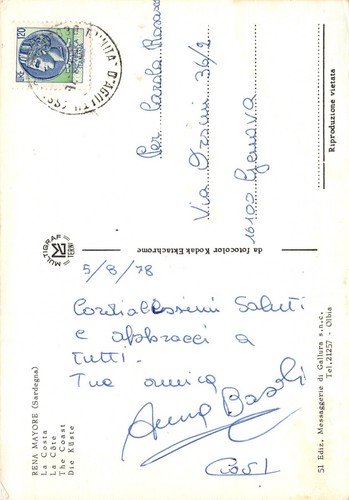 120
TRINITA' D'AGULTU (SS)
Per Carola Rosasco
Via Orsini 36/2
16100 Genova
Riproduzione vietata
da fotocolor Kodak Ektachrome
MULTIGRAF
TERNI
5/8/78
Cordialissimi Saluti
e abbracci a
tutti.
Tua amica
Anna
RENA MAYORE (Sardegna)
La Costa
La Côte
The Coast
Die Küste
51 Ediz. Messaggerie di Gallura s.n.c.
Tel. 21257 - Olbia